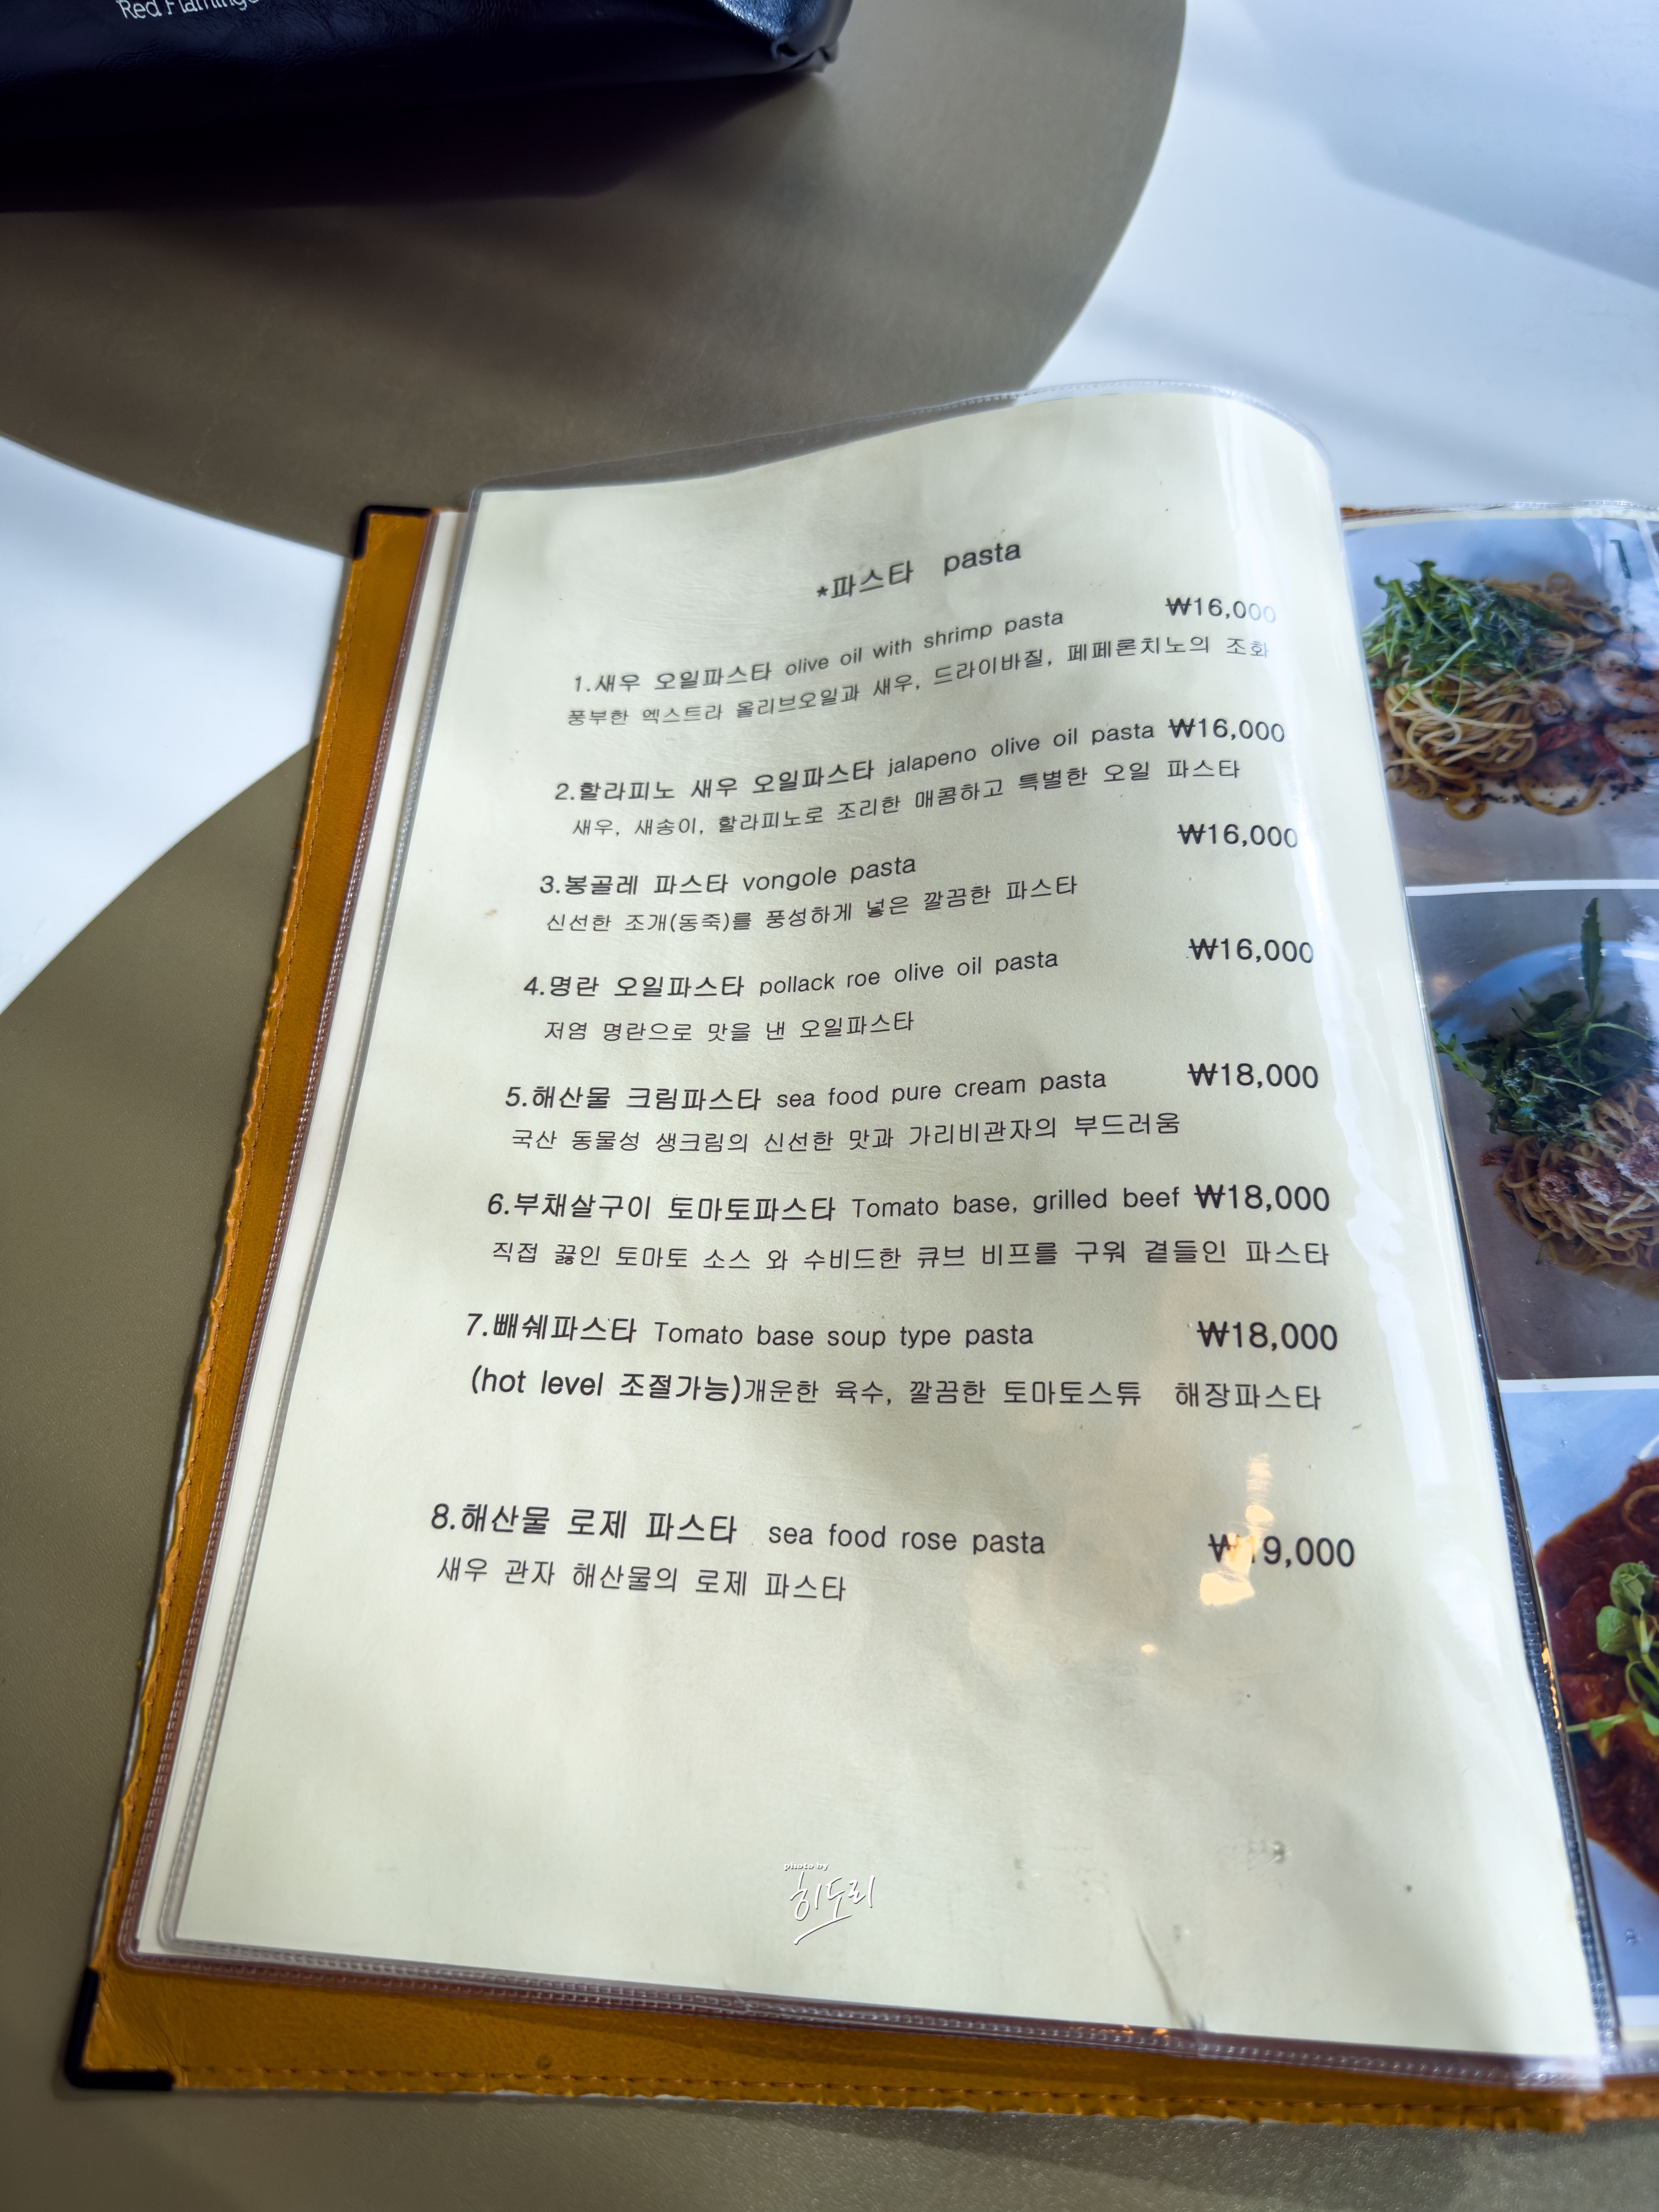 Red Flamingo
*파스타 pasta
1.새우 오일파스타 olive oil with shrimp pasta ₩16,000
풍부한 엑스트라 올리브오일과 새우, 드라이바질, 페페론치노의 조화
2.할라피노 새우 오일파스타 jalapeno olive oil pasta ₩16,000
새우, 새송이, 할라피노로 조리한 매콤하고 특별한 오일 파스타
3.봉골레 파스타 vongole pasta ₩16,000
신선한 조개(동죽)를 풍성하게 넣은 깔끔한 파스타
4.명란 오일파스타 pollack roe olive oil pasta ₩16,000
저염 명란으로 맛을 낸 오일파스타
5.해산물 크림파스타 sea food pure cream pasta ₩18,000
국산 동물성 생크림의 신선한 맛과 가리비관자의 부드러움
6.부채살구이 토마토파스타 Tomato base, grilled beef ₩18,000
직접 끓인 토마토 소스 와 수비드한 큐브 비프를 구워 곁들인 파스타
7.빼쉐파스타 Tomato base soup type pasta ₩18,000
(hot level 조절가능)개운한 육수, 깔끔한 토마토스튜 해장파스타
8.해산물 로제 파스타 sea food rose pasta ₩19,000
새우 관자 해산물의 로제 파스타
photo by
히도리
1